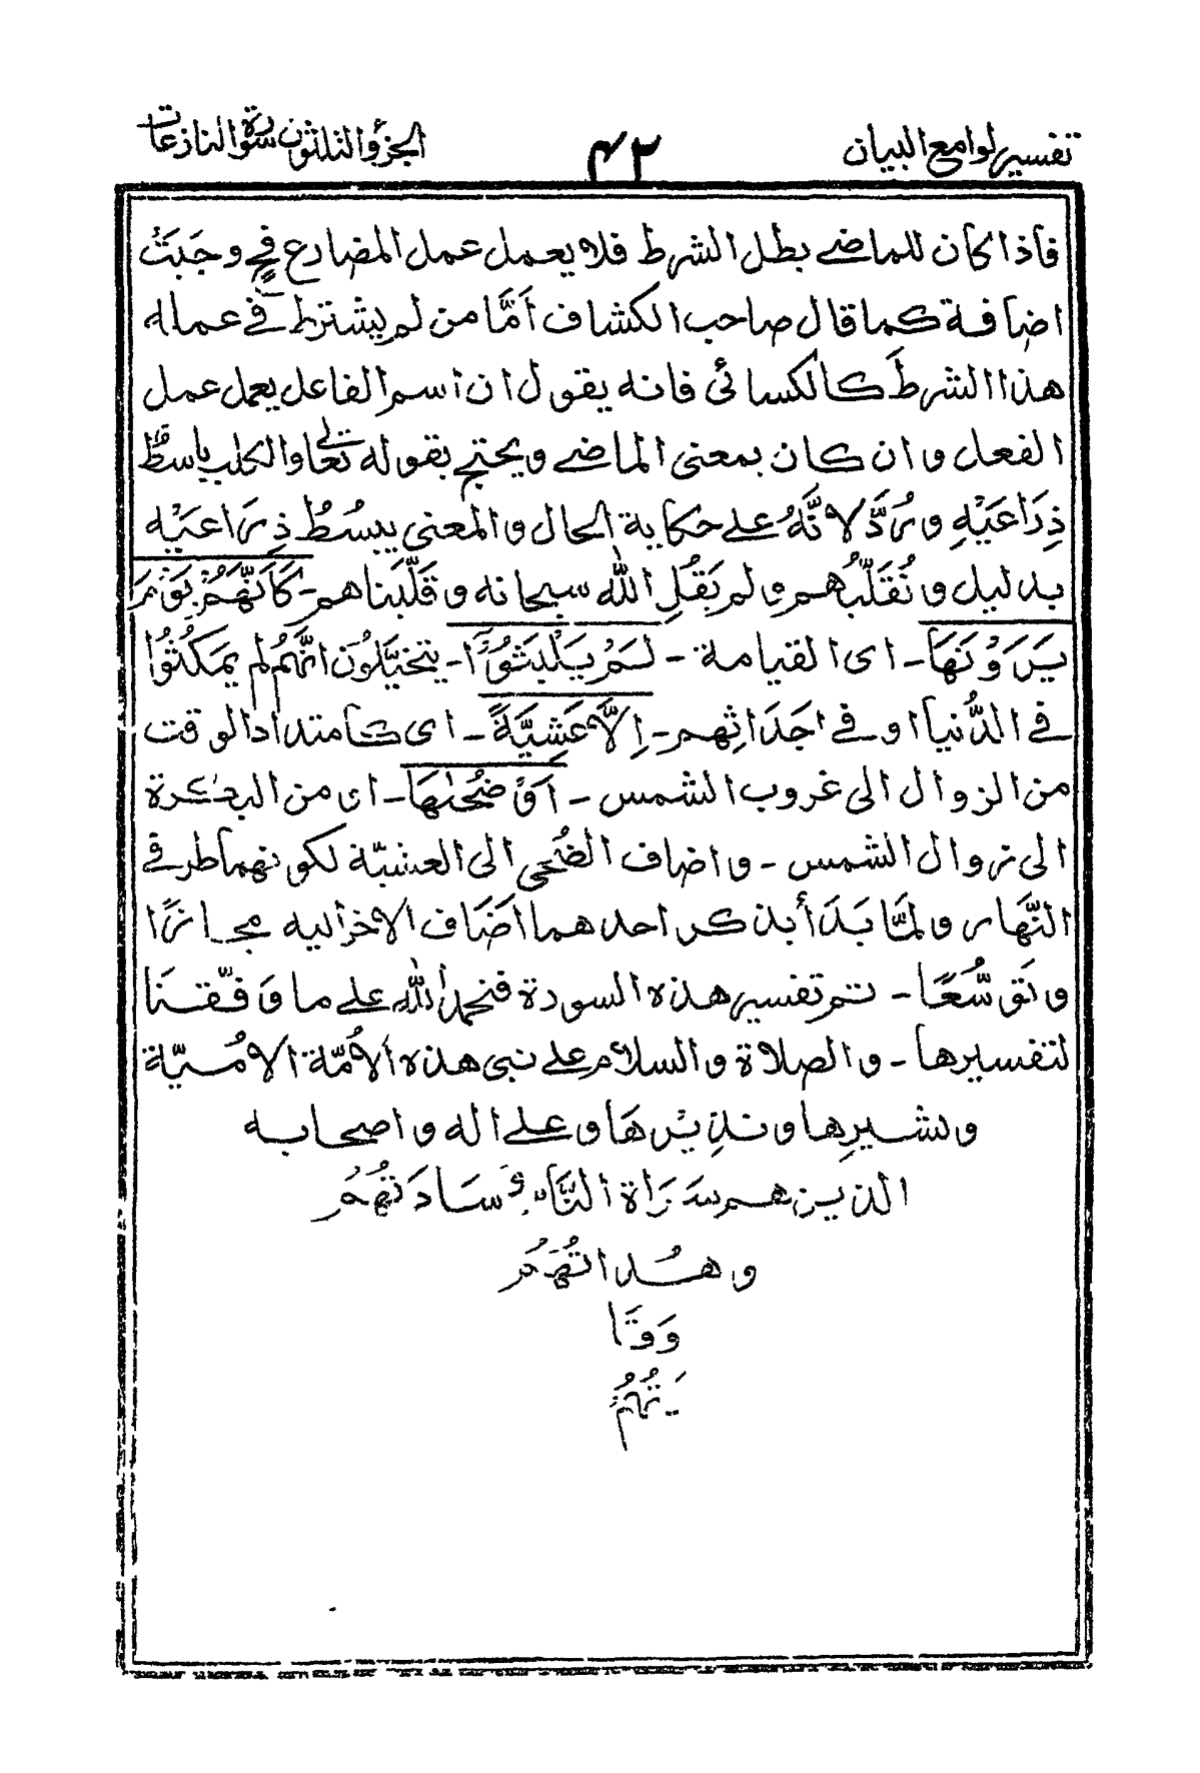 تفسير لوامع البيان
٤٢
الجزؤ الثلثون سورة النازعات
فاذا كان للماضي بطل الشرط فلا يعمل عمل المضارع فح وجبت
اضافة كما قال صاحب الكشاف أمّا من لم يشترط في عمله
هذا الشرط كالكسائى فانه يقول ان اسم الفاعل يعمل عمل
الفعل وان كان بمعنى الماضي ويحتج بقوله تعالى والكلب باسطٌ
ذِرَاعَيْهِ ورُدَّ لانَّهُ على حكاية الحال والمعنى يبسُطُ ذِرَاعَيْه
بدليل ونُقَلّبُهم ولم يَقُلِ الله سبحانه وقَلَّبناهم - كَأَنَّهُمْ يَوْمَ
يَرَوْنَهَا - اى القيامة - لَمْ يَلْبَثُوْٓا - يتخيَّلُون انَّهُم لم يمكُثُوْا
في الدُّنيا او في اجَدَاثِهم - اِلاَّ عَشِيَّةً - اى كامتداد الوقت
من الزوال الى غروب الشمس - اَوْ ضُحٰهَا - اى من البكرة
الى زوال الشمس - واضاف الضُحى الى العشيّة لكونهما طرفي
النَّهار ولمَّا بَدَأ بذكر احدهما اَضَاف الاٰخر اليه مجازًا
وتوسُّعًا - تم تفسير هذه السورة فنحمد الله على ما وفّقنا
لتفسيرها - والصلاة والسلام على نبى هذه الاُمّة الاُميّة
وبشيرِها ونذِيْرِهَا وعلى اله واصحابه
الذين هم سَرَاة النَّاس وسَادَتُهُمْ
وهُداتُهُمْ
وَقَا
يَتُهُمْ